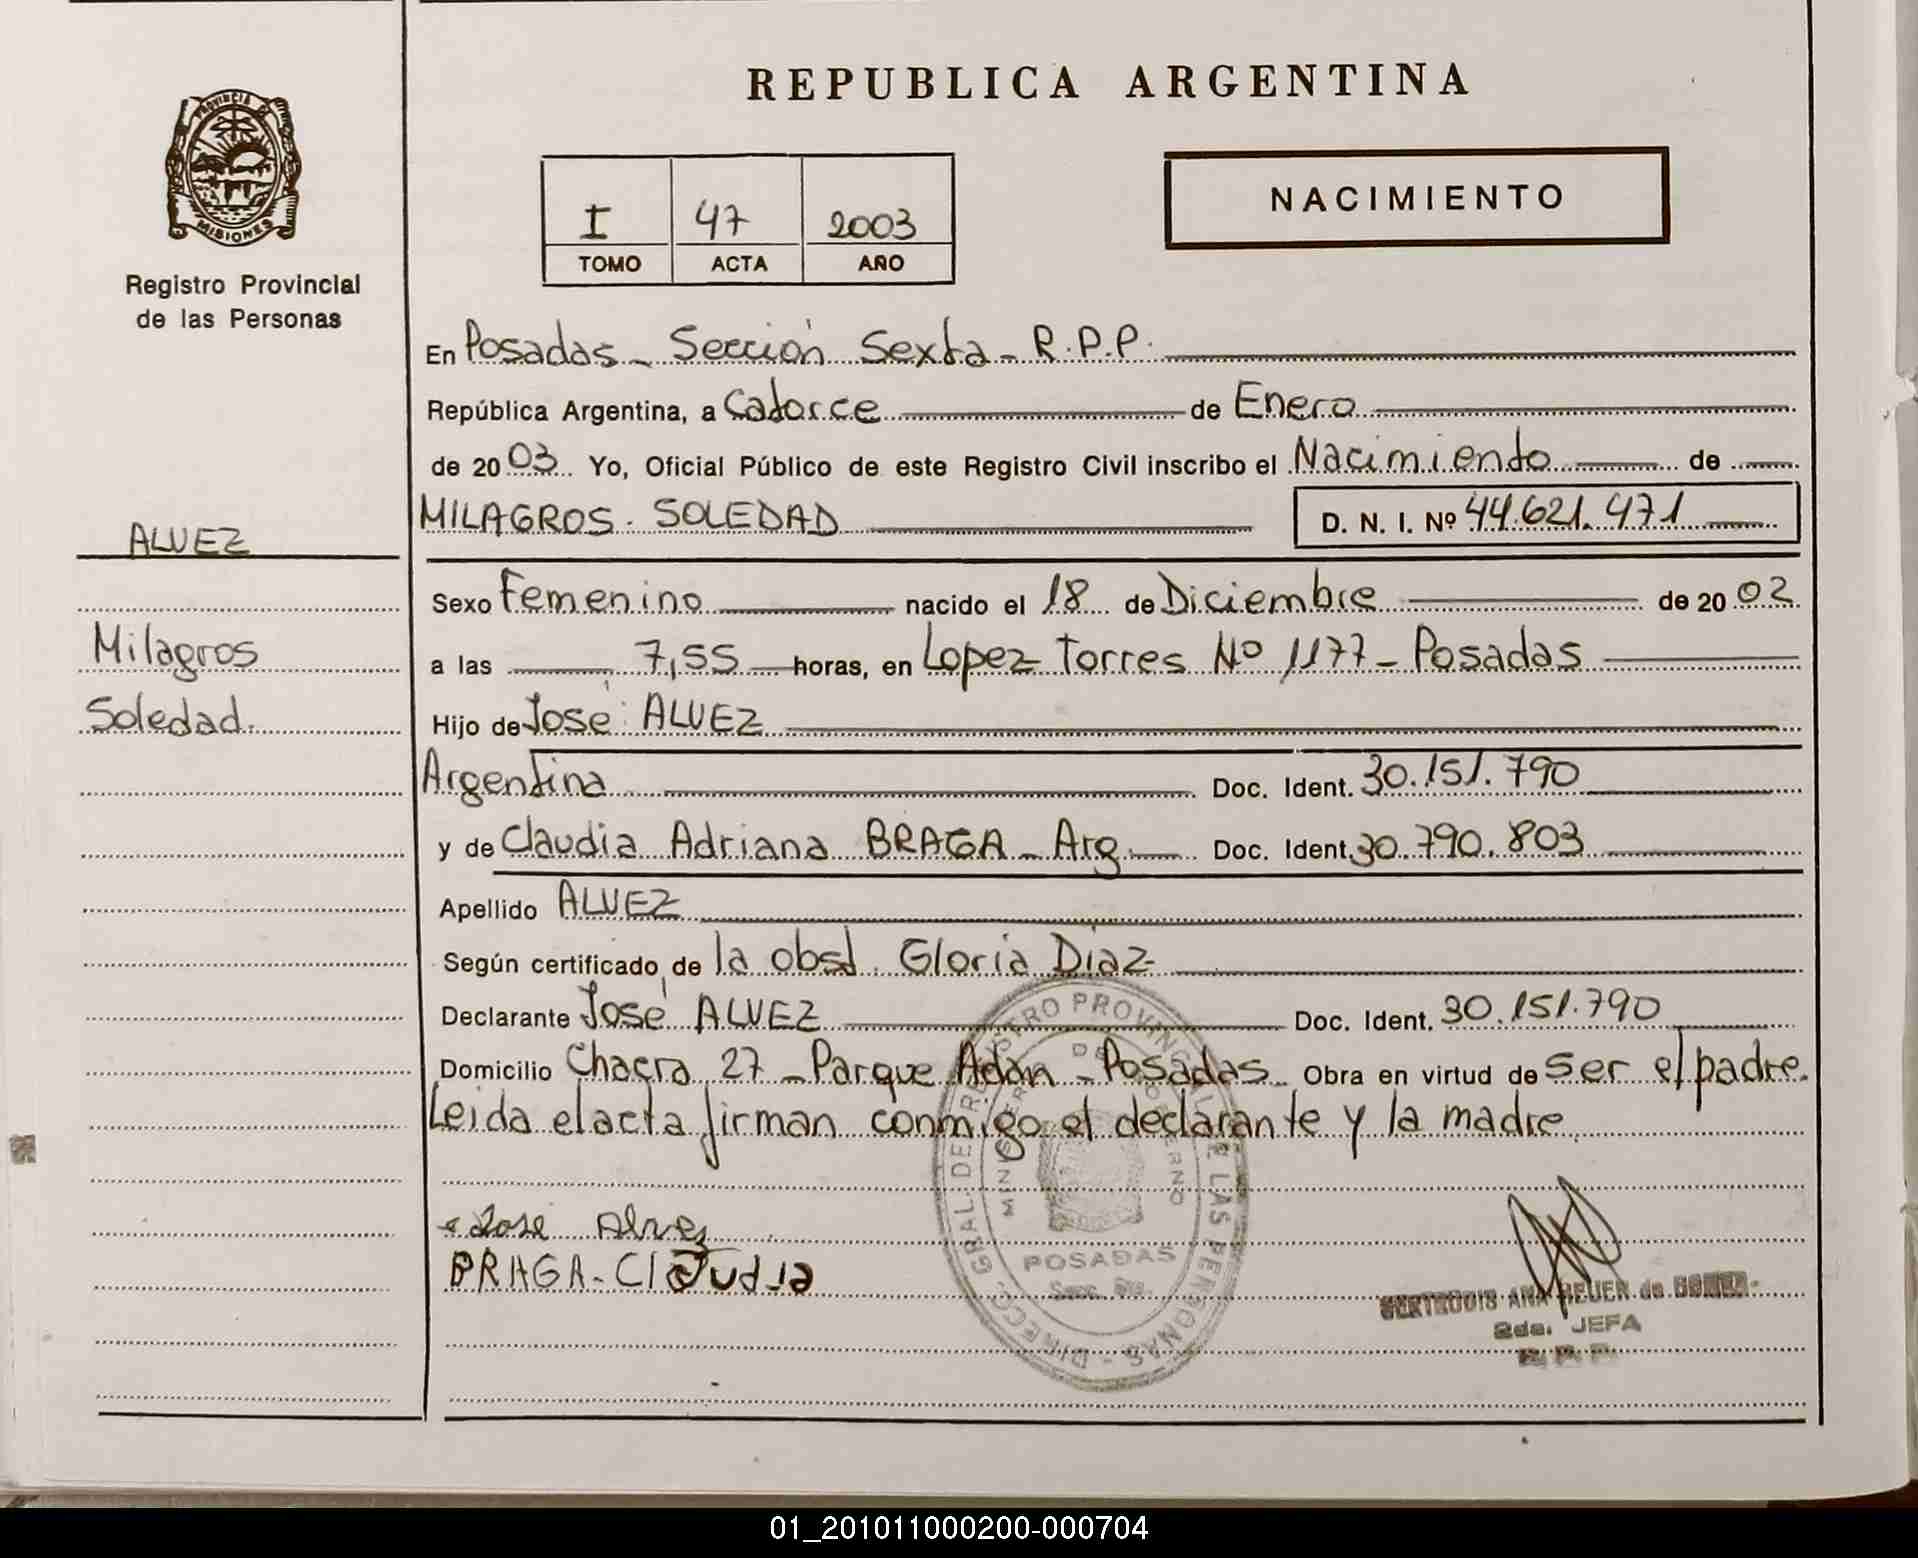 REPUBLICA ARGENTINA
PROVINCIA DE
MISIONES
Registro Provincial
de las Personas
I 47 2003
TOMO ACTA AÑO
NACIMIENTO
En Posadas - Sección Sexta - R.P.P.
República Argentina, a Catorce de Enero
de 2003 Yo, Oficial Público de este Registro Civil inscribo el Nacimiento de
MILAGROS SOLEDAD D. N. I. Nº 44.621.471
ALVEZ
Milagros
Soledad.
Sexo Femenino nacido el 18 de Diciembre de 2002
a las 7,55 horas, en Lopez Torres Nº 1177 - Posadas
Hijo de José ALVEZ
Argentina Doc. Ident. 30.151.790
y de Claudia Adriana BRAGA - Arg. Doc. Ident. 30.790.803
Apellido ALVEZ
Según certificado de la obst. Gloria Diaz
Declarante José ALVEZ Doc. Ident. 30.151.790
Domicilio Chacra 27 - Parque Adan - Posadas Obra en virtud de ser el padre.
Leida el acta firman conmigo el declarante y la madre
Jose Alvez
BRAGA - Claudia
DIRECC. GRAL. DE REGISTRO PROVINCIAL DE LAS PERSONAS
MINISTERIO DE GOBIERNO
POSADAS
GERTRUDIS ANA BEUER de
2da. JEFA
R. P. P.
01_201011000200-000704